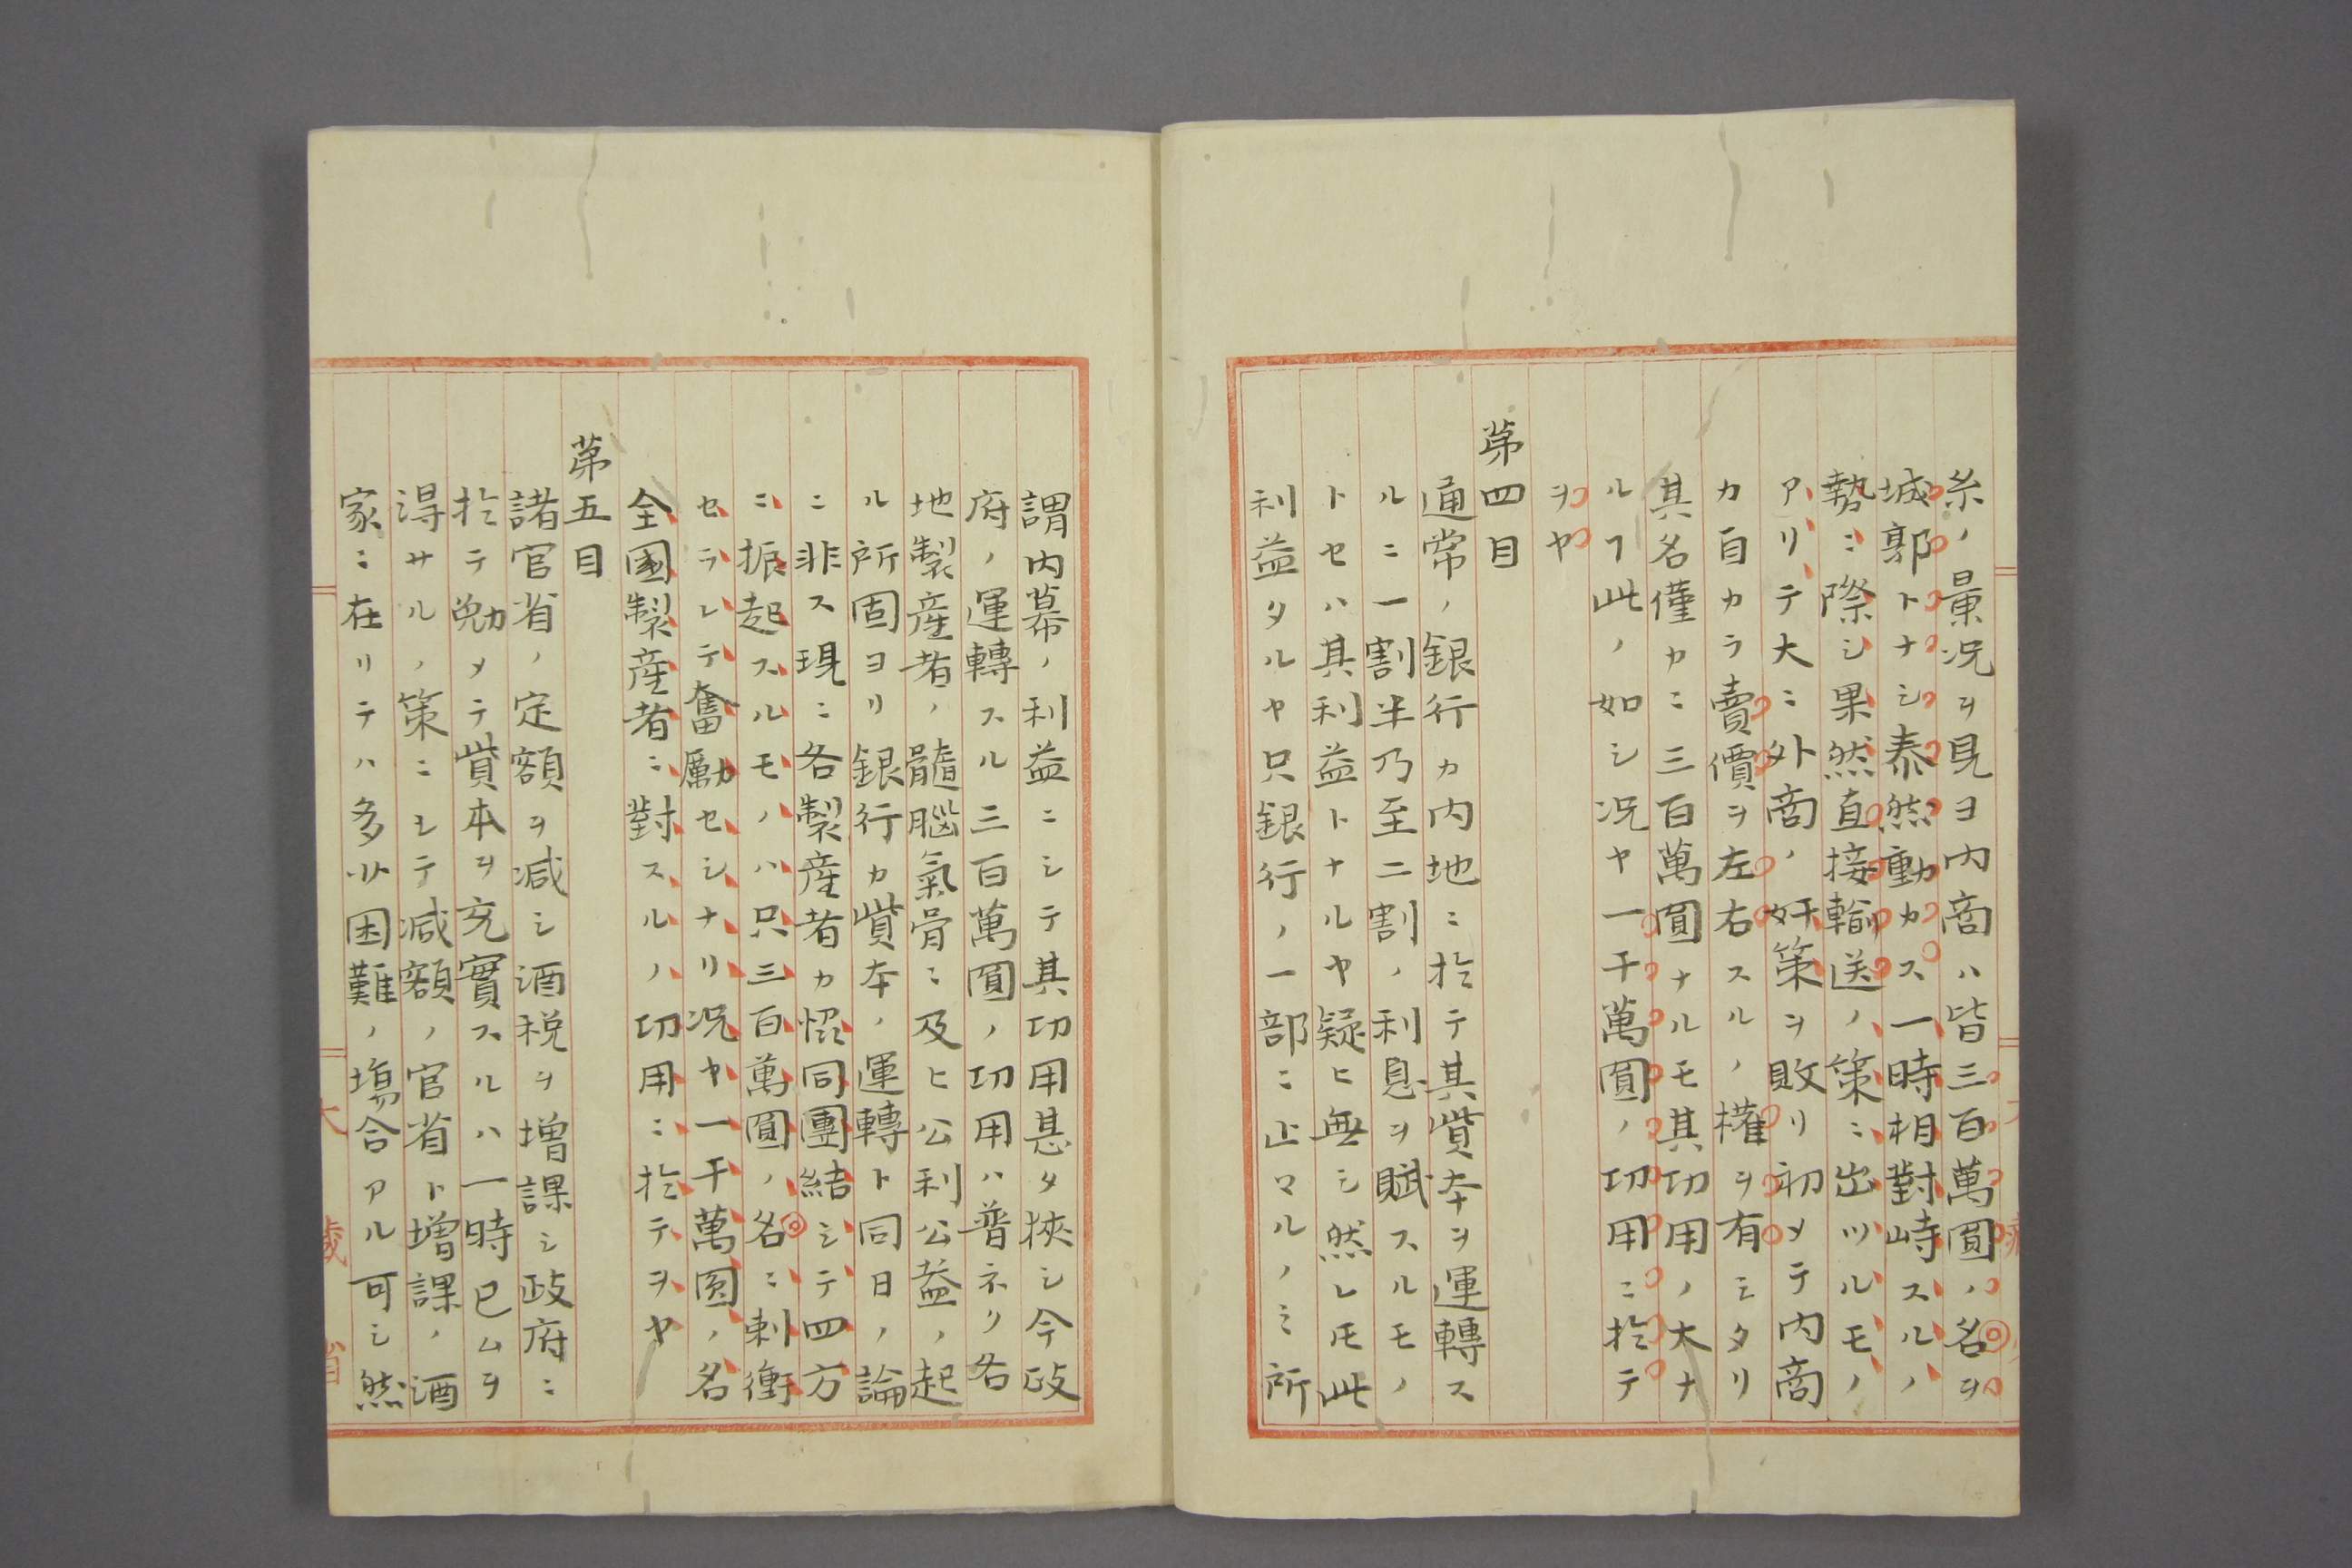 糸ノ景况ヲ見ヨ内商ハ皆三百萬圓ノ名ヲ
城郭トナシ泰然動カス一時相對峙スルノ
勢ニ際シ果然直接輸送ノ策ニ出ツルモノ
アリテ大ニ外商ノ奸策ヲ敗リ初メテ内商
カ自カラ賣價ヲ左右スルノ權ヲ有ミタリ
其名僅カニ三百萬圓ナルモ其功用ノ大ナ
ルヿ此ノ如シ况ヤ一千萬圓ノ切用ニ於テ
ヲヤ
第四目
通常ノ銀行カ内地ニ於テ其資本ヲ運轉ス
ルニ一割半乃至二割ノ利息ヲ賦スルモノ
トセハ其利益トナルヤ疑ヒ無シ然レ𪜈此
利益タルヤ只銀行ノ一部ニ止マルノミ所
謂内幕ノ利益ニシテ其功用甚タ狹シ今政
府ノ運轉スル三百萬圓ノ功用ハ普ネク各
地製産者ノ髓腦氣骨ニ及ヒ公利公益ノ起
ル所固ヨリ銀行カ資本ノ運轉ト同日ノ論
ニ非ス現ニ各製産者カ恊同團結シテ四方
ニ振起スルモノハ只三百萬圓ノ名ニ刺衝
セラレテ奮勵セシナリ况ヤ一千萬圓ノ名
全國製産者ニ對スルノ功用ニ於テヲヤ
第五目
諸官省ノ定額ヲ减シ酒税ヲ増課シ政府ニ
於テ勉メテ資本ヲ充實スルハ一時已ムヲ
得サルノ策ニシテ减額ノ官省ト増課ノ酒
家ニ在リテハ多少困難ノ塲合アル可シ然
大 藏 省